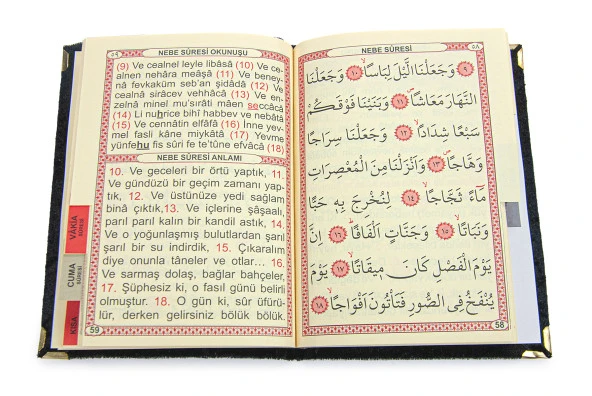 ٥٩
NEBE SÛRESİ OKUNUŞU
(9) Ve cealnel leyle libâsâ (10) Ve ce-
alnen nehâra meâşâ (11) Ve beney-
nâ fevkaküm seb'an şidâdâ (12) Ve
cealnâ sirâcev vehhâcâ (13) Ve en-
zelnâ minel mu'srâti mâen seccâcâ
(14) Li nuhrice bihî habbev ve nebâtâ
(15) Ve cennâtin elfâfâ (16) İnne yev-
mel fasli kâne miykâtâ (17) Yevme
yünfehu fis sûri fe te'tûne efvâcâ (18)
NEBE SÛRESİ ANLAMI
10. Ve geceleri bir örtü yaptık, 11.
Ve gündüzü bir geçim zamanı yap-
tık, 12. Ve üstünüze yedi sağlam
binâ çıktık,13. Ve içlerine şâşaalı,
parıl parıl kalın bir kandil astık, 14.
Ve o yoğunlaşmış bulutlardan şarıl
şarıl bir su indirdik, 15. Çıkaralım
diye onunla tâneler ve otlar... 16.
Ve sarmaş dolaş, bağlar bahçeler,
17. Şüphesiz ki, o fasıl günü belirli
olmuştur. 18. O gün ki, sûr üfürü-
lür, derken gelirsiniz bölük bölük.
59
VÂKIA
SÛRESİ
CUMA
SÛRESİ
KISA
NEBE SÛRESİ
٥٨
٩ وَجَعَلْنَا الَّيْلَ لِبَاسًاۙ ١٠ وَجَعَلْنَا
النَّهَارَ مَعَاشًاۖ ١١ وَبَنَيْنَا فَوْقَكُمْ
سَبْعًا شِدَادًاۙ ١٢ وَجَعَلْنَا سِرَاجًا
وَهَّاجًاۖ ١٣ وَاَنْزَلْنَا مِنَ الْمُعْصِرَاتِ
مَٓاءً ثَجَّاجًاۙ ١٤ لِنُخْرِجَ بِه۪ حَبًّا
وَنَبَاتًاۙ ١٥ وَجَنَّاتٍ اَلْفَافًاۜ ١٦ اِنَّ
يَوْمَ الْفَصْلِ كَانَ م۪يقَاتًاۙ ١٧ يَوْمَ
يُنْفَخُ فِي الصُّورِ فَتَأْتُونَ اَفْوَاجًاۙ ١٨
58